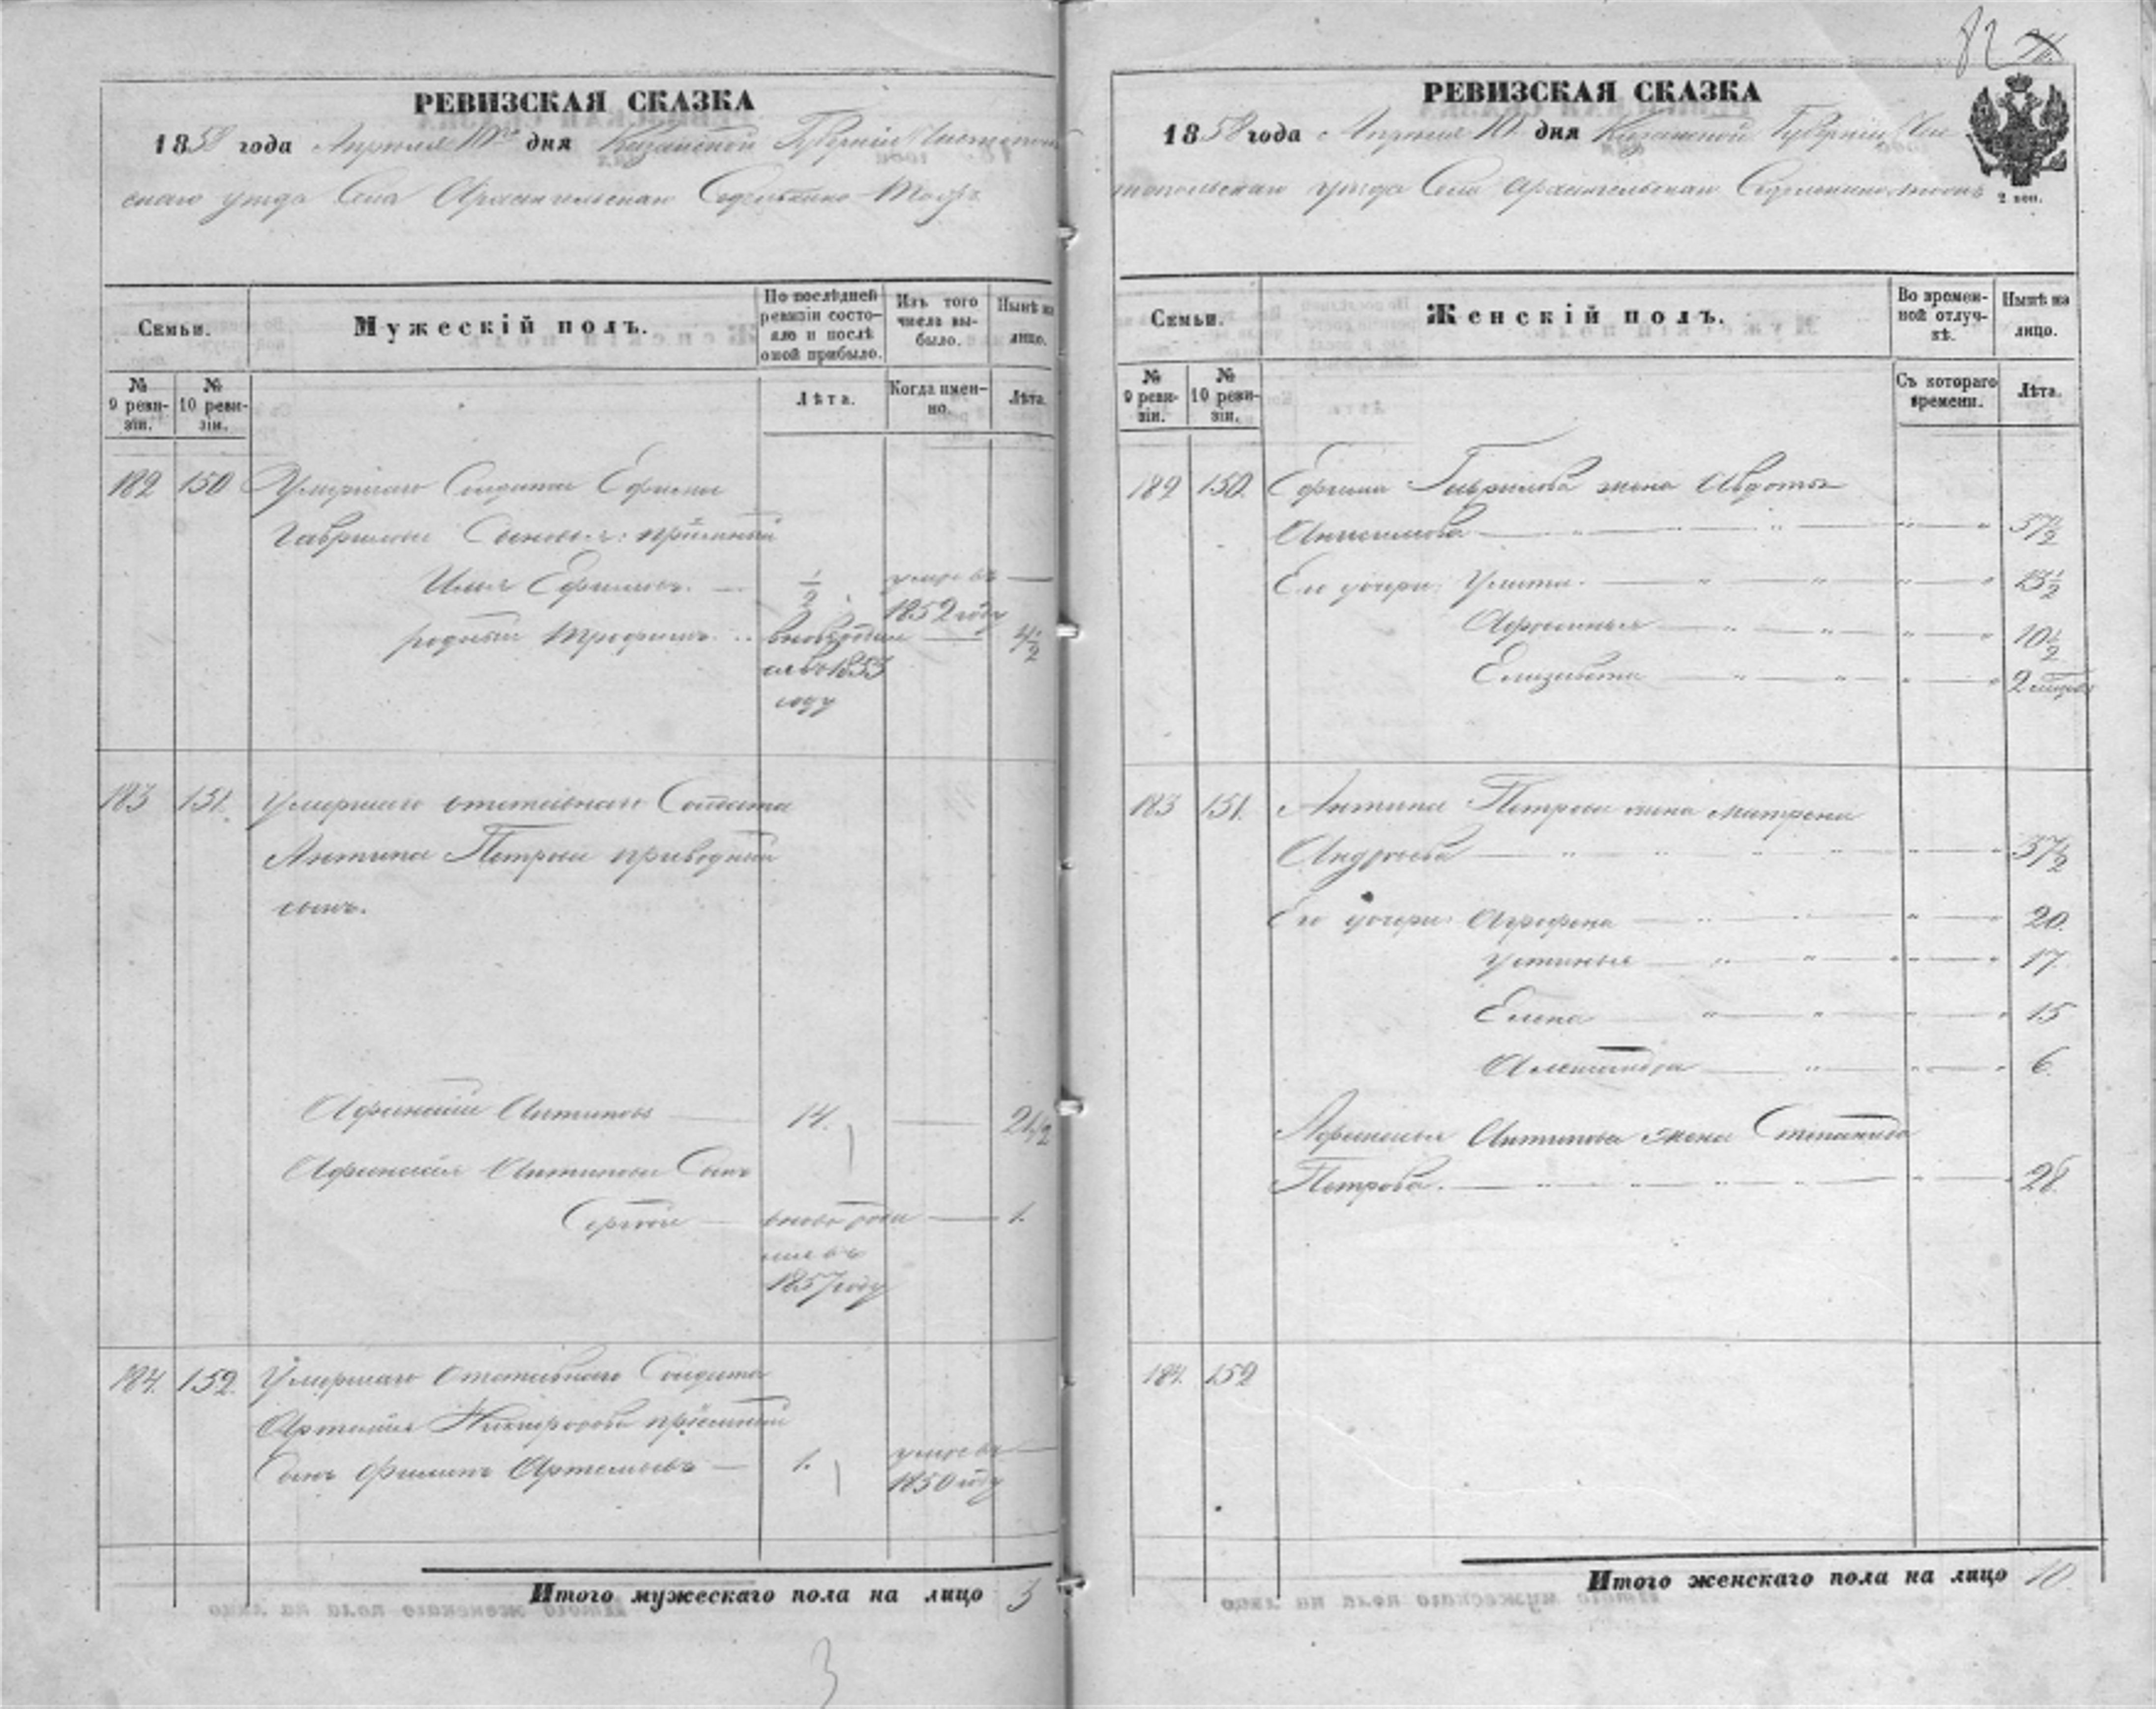 РЕВИЗСКАЯ СКАЗКА
1858 года Апреля 10го дня Казанской Губернiи Чистополь
скаго уезда Села Архангельскаго
Семьи.
Мужескiй полъ.
По послѣдней ревизiи состо-
яло и послѣ
оной прибыло.
Изъ того
числа вы-
было.
Нынѣ на
лицо.
№
9 реви-
зiи.
№
10 реви-
зiи.
Лѣта.
Когда имен-
но.
Лѣта.
182 150 Умершаго Солдата Ефима
Гаврилова Сыновья: прiемный
Илья Ефимовъ. — 1/2 умре въ —
1852 году
родный Трофимъ вновь родив — 4 1/2
ся въ 1853
году
183 151. Умершаго отставнаго Солдата
Антипа Петрова приводный
сынъ.
Афанасiй Антиповъ — 14. — 21 1/2
Афанасiя Антипова Сынъ
Сергей — вновь роди — 1.
1857 году
184. 152. Умершаго Отставнаго Солдата
Артемiя Никифорова прiемный
Сынъ Филипъ Артемьевъ — 1. умре въ —
1850 году
Итого мужескаго пола на лицо 3
3
82
РЕВИЗСКАЯ СКАЗКА
1858 года Апреля 10 дня Казанской Губернiи, Чис
топольскаго уезда Села Архангельскаго
2 коп.
Семьи.
Женскiй полъ.
Во времен-
ной отлуч-
кѣ.
Нынѣ на
лицо.
№
9 реви-
зiи.
№
10 реви-
зiи.
Съ котораго
времени.
Лѣта.
182 150. Ефима Гаврилова жена Авдотья
Анисимова — 37 1/2
Его дочери: Улита. — 13 1/2
Афросинья — 10 1/2
Елизавета — 2
183 151. Антипа Петрова жена Матрена
Андреева — 37 1/2
Его дочери: Агрофена — 20.
Устинья — 17.
Елена — 15
Александра — 6.
Афанасья Антипова жена Степанида
Петрова. — 28.
184. 152
Итого женскаго пола на лицо 10.